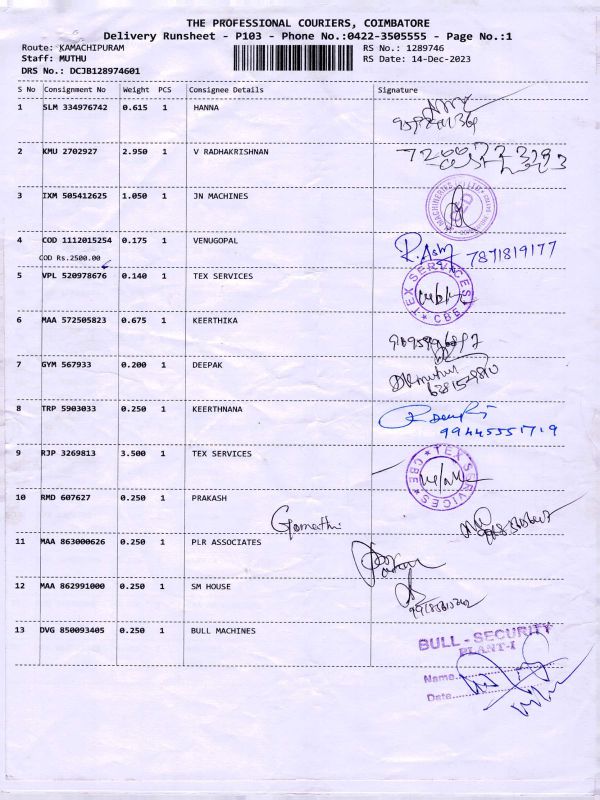 THE PROFESSIONAL COURIERS, COIMBATORE
Delivery Runsheet - P103 - Phone No.:0422-3505555 - Page No.:1
Route: KAMACHIPURAM RS No.: 1289746
Staff: MUTHU RS Date: 14-Dec-2023
DRS No.: DCJB128974601
S No Consignment No Weight PCS Consignee Details Signature
1 SLM 334976742 0.615 1 HANNA
2 KMU 2702927 2.950 1 V RADHAKRISHNAN
3 IXM 505412625 1.050 1 JN MACHINES
4 COD 1112015254 0.175 1 VENUGOPAL 7871819177
COD Rs.2500.00
5 VPL 520978676 0.140 1 TEX SERVICES TEX SERVICES CBE
6 MAA 572505823 0.675 1 KEERTHIKA
7 GYM 567933 0.200 1 DEEPAK
8 TRP 5903033 0.250 1 KEERTHNANA
9 RJP 3269813 3.500 1 TEX SERVICES TEX SERVICES CBE
10 RMD 607627 0.250 1 PRAKASH
Gomathi
11 MAA 863000626 0.250 1 PLR ASSOCIATES
12 MAA 862991000 0.250 1 SM HOUSE
13 DVG 850093405 0.250 1 BULL MACHINES
BULL - SECURITY
PLANT-I
Name
Date